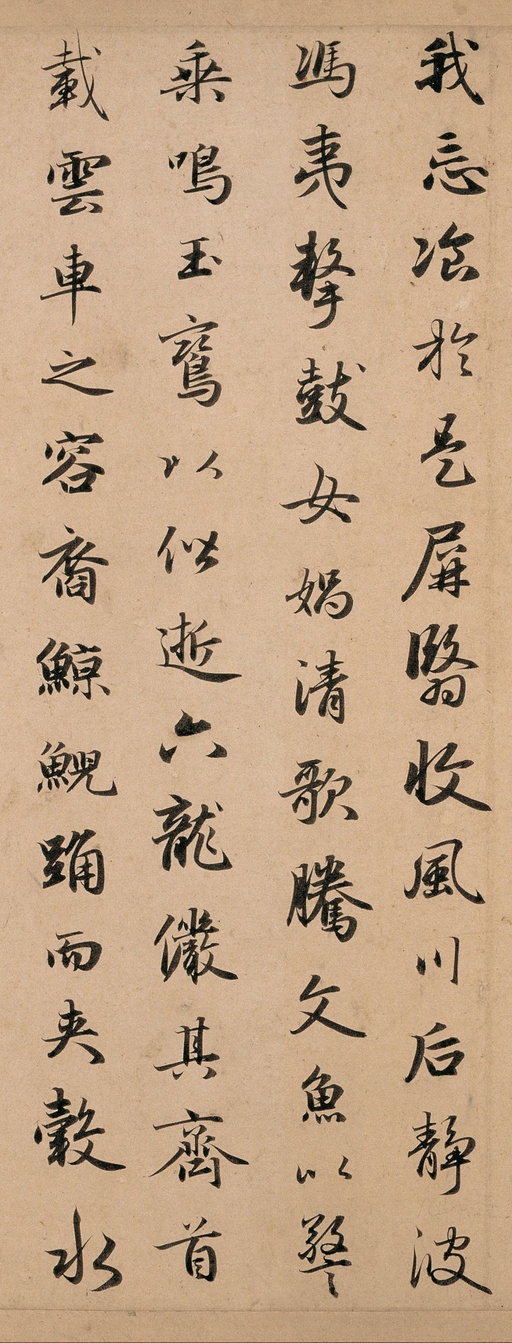 我忘飡於是屏翳收風川后靜波
馮夷擊鼓女媧清歌騰文魚以警
乘鳴玉鸞以偕逝六龍儼其齊首
載雲車之容裔鯨鯢踊而夾轂水